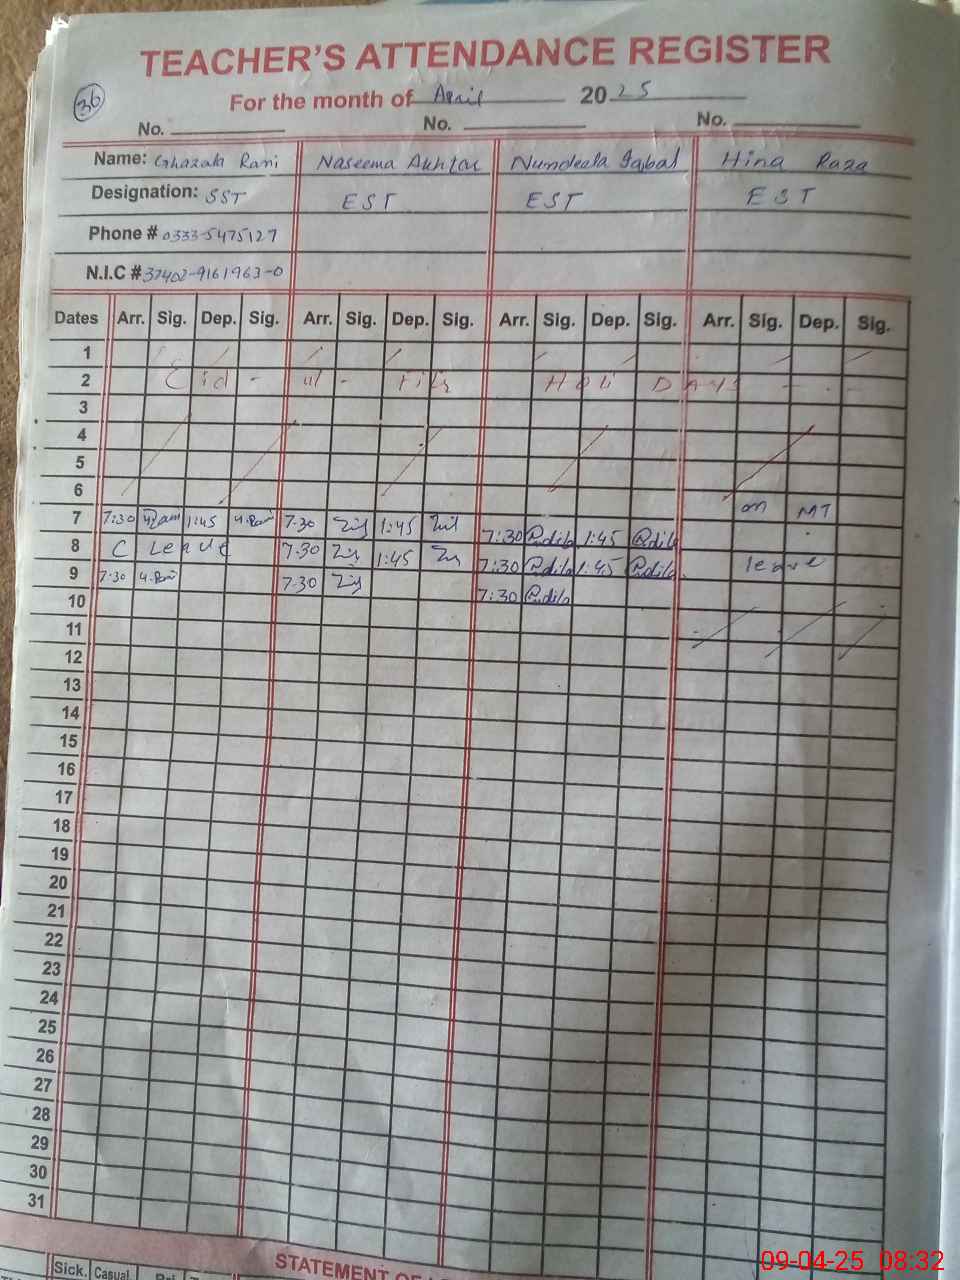 TEACHER'S ATTENDANCE REGISTER
36
For the month of April 2025
No. No. No.
Name: Ghazala Rani Naseema Akhtar Iqbal Hina Raza
Designation: SST EST EST EST
Phone # 0333-5475127
N.I.C # 37402-9161963-0
Dates Arr. Sig. Dep. Sig. Arr. Sig. Dep. Sig. Arr. Sig. Dep. Sig. Arr. Sig. Dep. Sig.
1
2 Eid - ul - Fitr Holi DAYS
3
4
5
6
7 7:30 1:45 7:30 1:45 7:30 1:45 on MT
8 C Leave 7:30 1:45 7:30 1:45 leave
9 7:30 7:30 7:30
10
11
12
13
14
15
16
17
18
19
20
21
22
23
24
25
26
27
28
29
30
31
STATEMENT OF
Sick. Casual
09-04-25 08:32